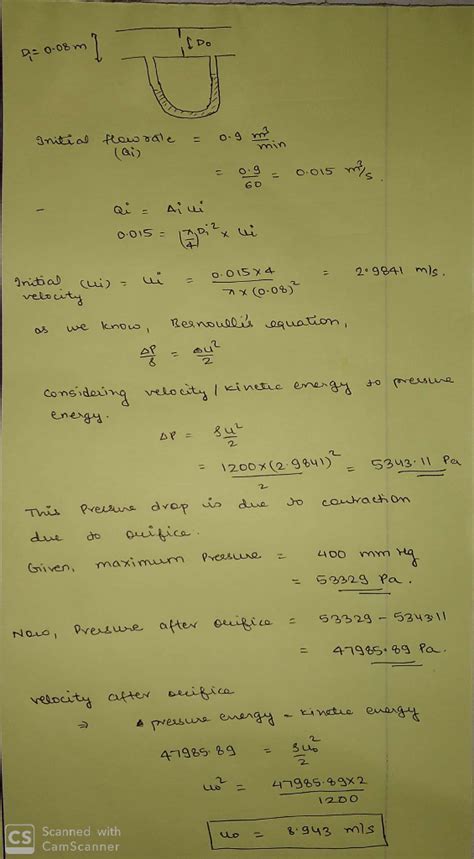 Di = 0.08 m
Do
Initial flow rate = 0.9 m³/min
(Qi)
= 0.9/60 = 0.015 m³/s
- Qi = Ai ui
0.015 = (π/4) Di² × ui
Initial (ui) = ui = 0.015×4 / π×(0.08)² = 2.9841 m/s.
velocity
as we know, Bernoulli's equation,
ΔP/ρ = Δu²/2
Considering velocity / kinetic energy to pressure
energy.
ΔP = ρu²/2
= 1200×(2.9841)²/2 = 5343.11 Pa
This Pressure drop is due to contraction
due to orifice.
Given, maximum Pressure = 400 mm Hg
= 53329 Pa.
Now, Pressure after orifice = 53329 - 5343.11
= 47985.89 Pa.
velocity after orifice
⇒ pressure energy = kinetic energy
47985.89 = ρuo²/2
uo² = 47985.89×2/1200
uo = 8.943 m/s
CS Scanned with
CamScanner